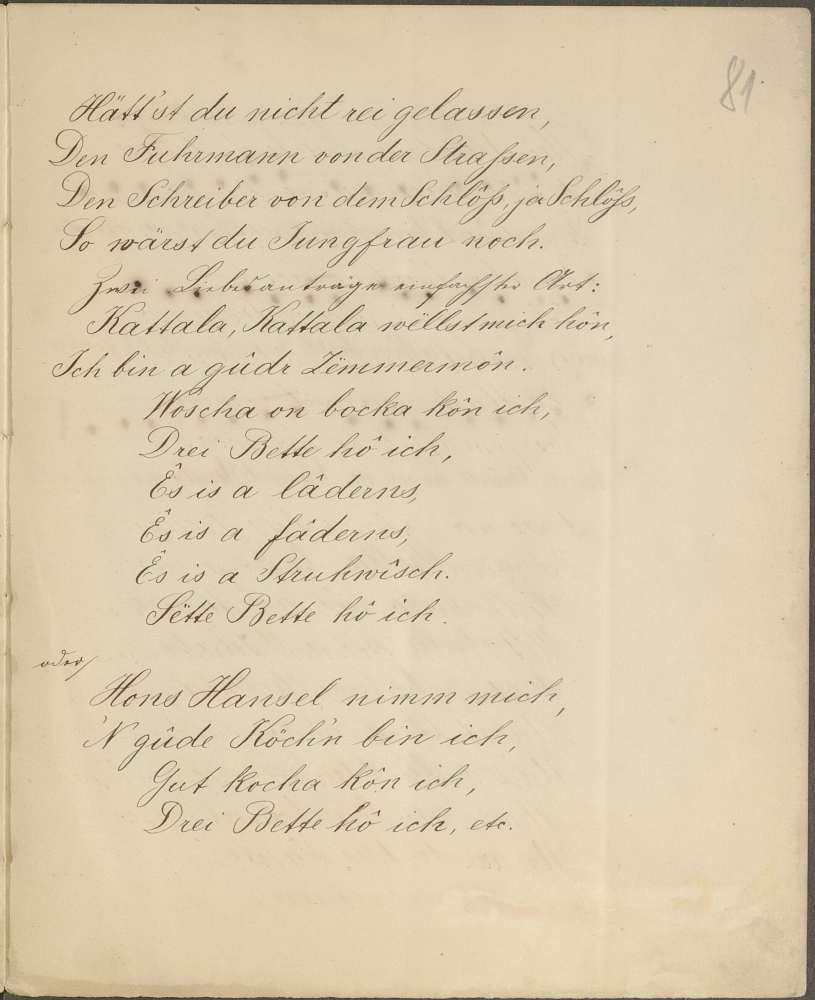 81
Hätt'st du nicht rei gelassen,
Den Fuhrmann von der Strassen,
Den Schreiber von dem Schlôß, ja Schlôß,
So wärst du Jungfrau noch.
Zwei Liebesanträge einfachster Art:
Kattala, Kattala wëllst mich hôn,
Ich bin a gûdr Zëmmermôn.
Woscha on bocka kôn ich,
Drei Bette hô ich,
Ês is a lâderns,
Ês is a fâderns,
Ês is a Struhwîsch.
Sëtte Bette hô ich.
oder
Hons Hansel nimm mich,
'N gûde Köch'n bin ich,
Gut kocha kôn ich,
Drei Bette hô ich, etc.